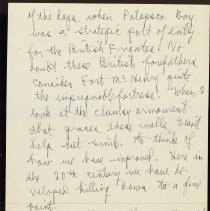 of the days when Patapsco Bay
was a strategic port of entry
for the British Frigates. No
doubt these British forefathers
consider Fort Mc Henry quite
the impregnable fortress. When I
look at the clumsy armament
that graces these walls, I can't
help but smile to think of
how we have improved. Here in
the 20th century we have de-
veloped killing down to a fine
point.